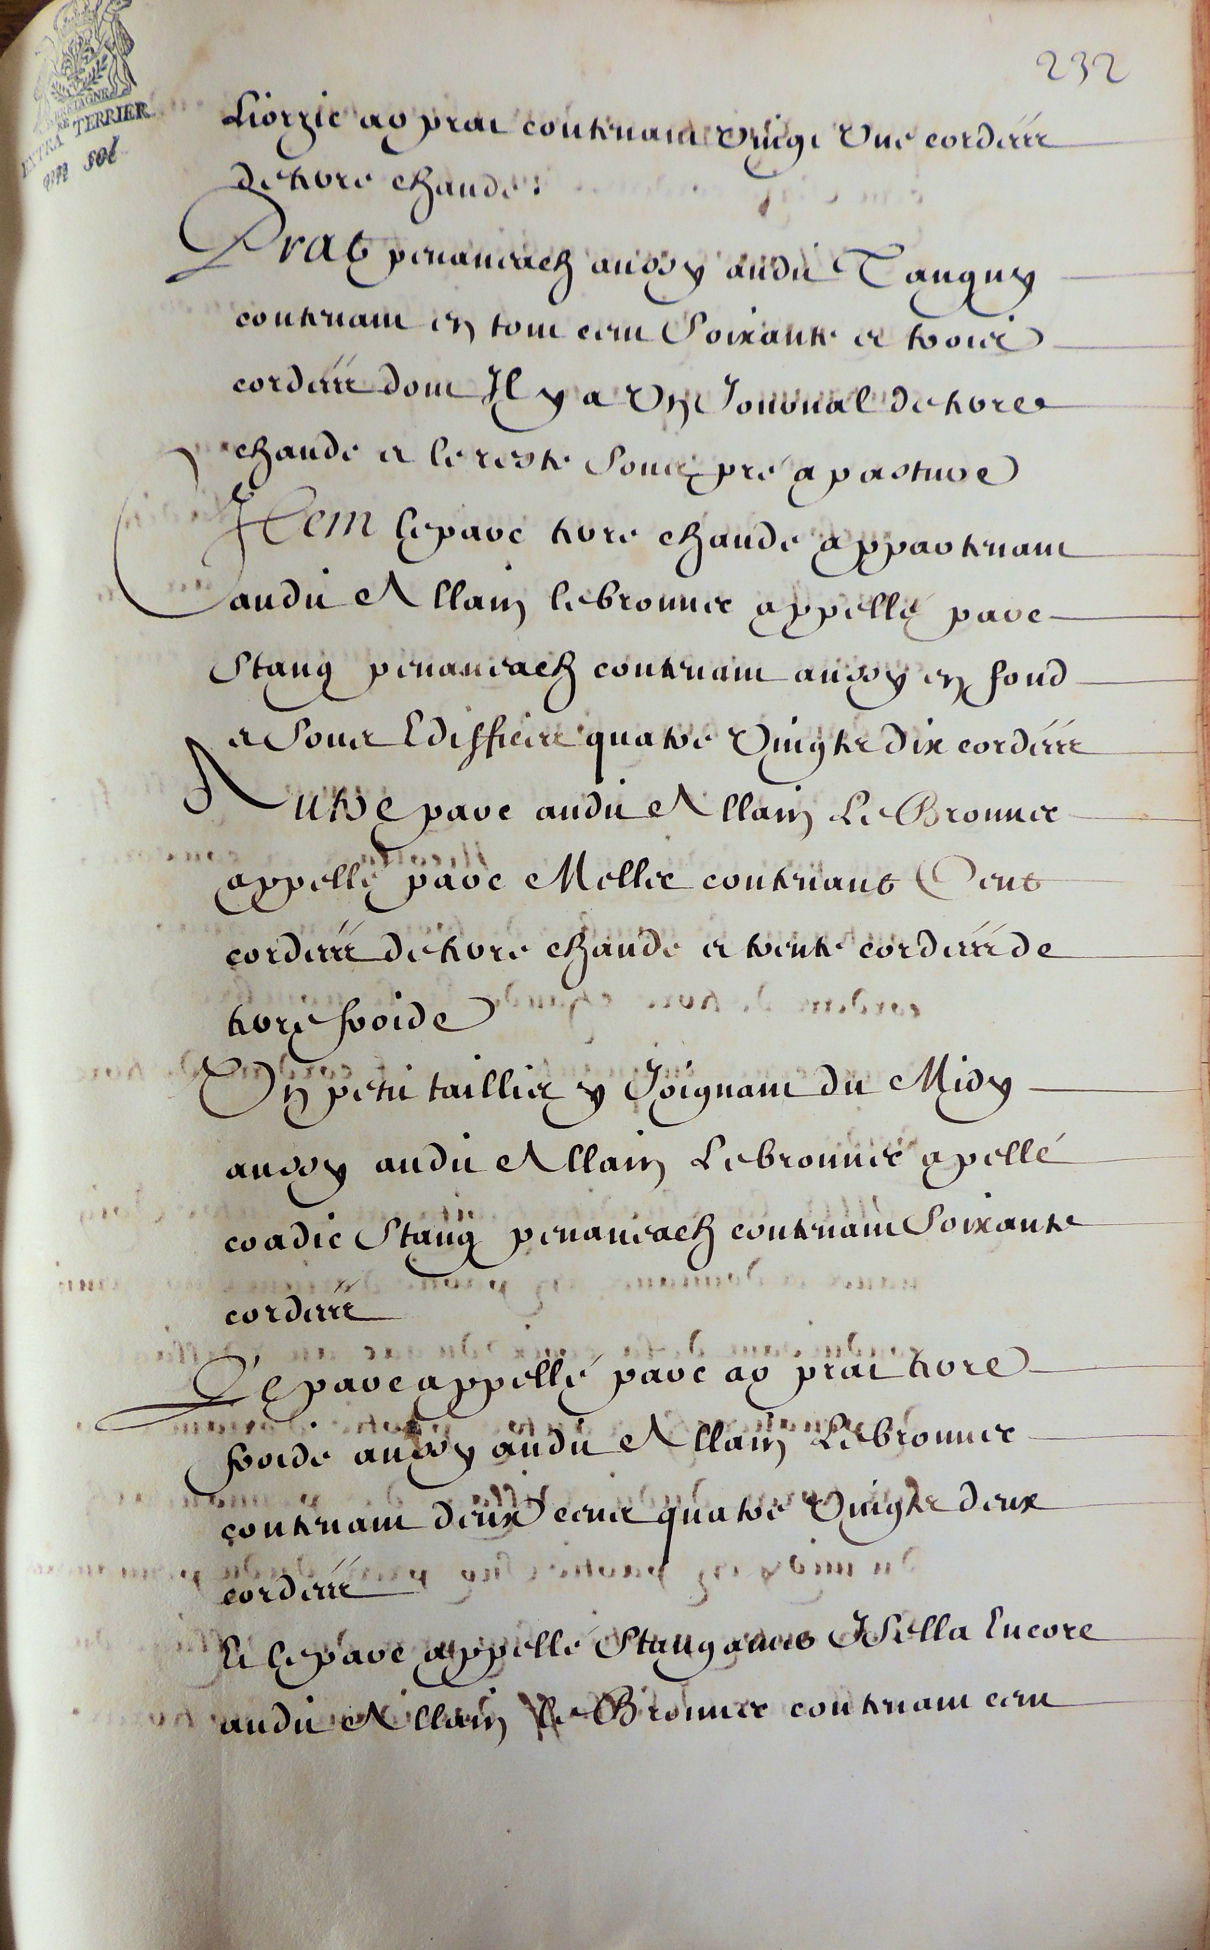 232
BRETAGNE
RE
EXTRA TERRIER
un sol
Liorzic ao prat contenant vingt une cordées
de terre chaude.
Prat penaneach aussy audit Tanguy
contenant en tout cent soixante et trois
cordées dont Il y a Un Journal de terre
chaude et le reste sous pré a pasture
Item le parc terre chaude appartenant
audit Allain le bronnec appellé parc
Stang penaneach contenant aussy en fond
et sous Edifficés quatre vingts dix cordées
Autre parc audit Allain Le Bronnec
appellé parc Mellec contenant Cent
cordées de terre chaude et trente cordées de
terre froide
Un petit taillier y Joignant du Midy
aussy audit Allain Le bronnec apellé
coadic Stang penaneach contenant Soixante
cordées
Le parc appellé parc ao prat terre
froide aussy audit Allain Le bronnec
contenant deux cents quatre vingts deux
cordées
Et le parc appellé Stang Isella Encore
audit Allain Le Bronnec contenant cent